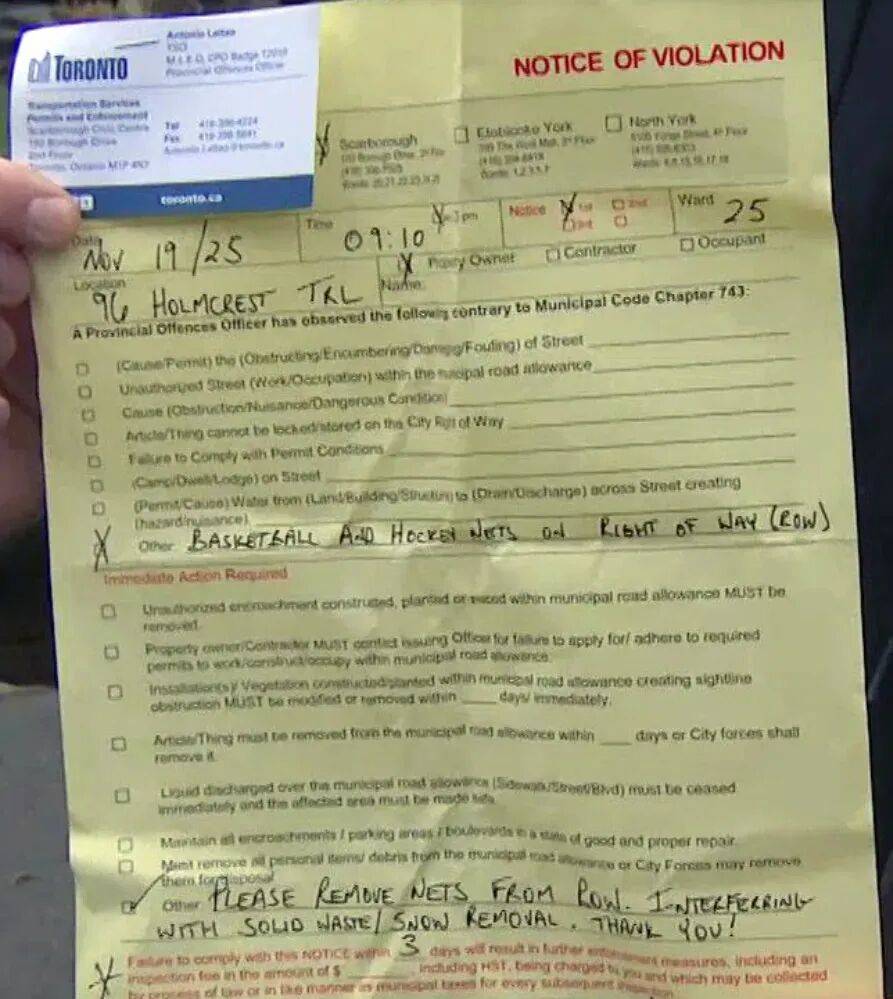 TORONTO
Antonio Leitao
M.L.E.O, CPO Badge
Provincial Offences Officer
Transportation Services
Permits and Enforcement
Scarborough Civic Centre
150 Borough Drive
Toronto, Ontario M1P 4N7
Tel
Fax
toronto.ca
NOTICE OF VIOLATION
X Scarborough
Etobicoke York
North York
Date Nov 19/25
Time 09:10 X pm
Notice X 1st 2nd 3rd
Ward 25
Location 96 HOLMCREST TRL
Name: X Owner Contractor Occupant
A Provincial Offences Officer has observed the following contrary to Municipal Code Chapter 743:
(Cause/Permit) the (Obstructing/Encumbering/Damaging/Fouling) of Street
Unauthorized Street (Work/Occupation) within the municipal road allowance
Cause (Obstruction/Nuisance/Dangerous Condition)
Article/Thing cannot be locked/stored on the City Right of Way
Failure to Comply with Permit Conditions
(Camp/Dwell/Lodge) on Street
(Permit/Cause) Water from (Land/Building/Structure) to (Drain/Discharge) across Street creating
(hazard/nuisance)
X Other BASKETBALL AND HOCKEY NETS ON RIGHT OF WAY (ROW)
Immediate Action Required
Unauthorized encroachment constructed, planted or placed within municipal road allowance MUST be
removed.
Property owner/Contractor MUST contact issuing Officer for failure to apply for/ adhere to required
permits to work/construct/occupy within municipal road allowance.
Installation(s)/ Vegetation constructed/planted within municipal road allowance creating sightline
obstruction MUST be modified or removed within ____ days/ immediately.
Article/Thing must be removed from the municipal road allowance within ____ days or City forces shall
remove it.
Liquid discharged over the municipal road allowance (Sidewalk/Street/Blvd) must be ceased
immediately and the affected area must be made safe.
Maintain all encroachments / parking areas / boulevards in a state of good and proper repair.
Must remove all personal items/ debris from the municipal road allowance or City Forces may remove
them for disposal
Other PLEASE REMOVE NETS FROM ROW. INTERFERRING
WITH SOLID WASTE/ SNOW REMOVAL. THANK YOU!
X Failure to comply with this NOTICE within 3 days will result in further enforcement measures, including an
inspection fee in the amount of $ ____, including HST, being charged to you and which may be collected
by process of law or in like manner as municipal taxes for every subsequent inspection